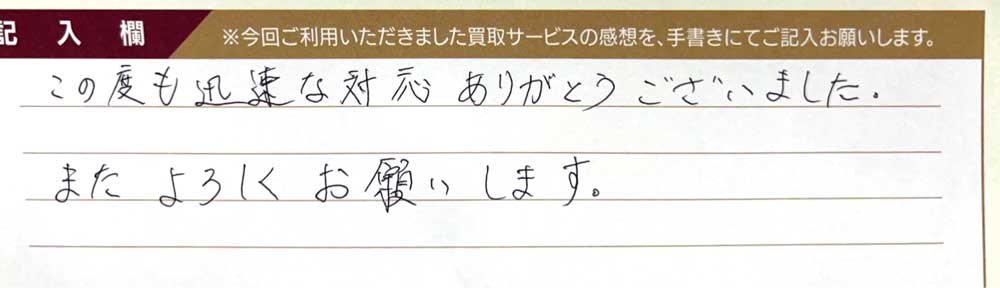 記入欄 ※今回ご利用いただきました買取サービスの感想を、手書きにてご記入お願いします。
この度も迅速な対応ありがとうございました。
またよろしくお願いします。